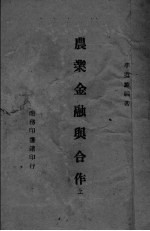 農業金融與合作
上
商務印書館印行